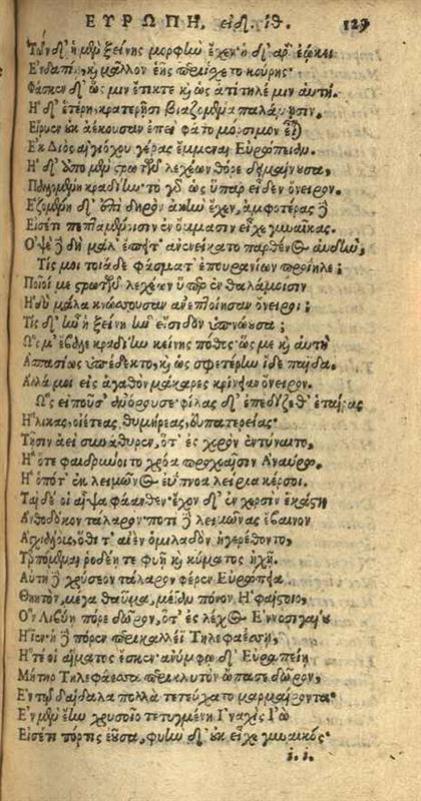 ΕΥΡΩΠΗ, εἰδ. ιθ. 129
Τῶν δ' ἡ μὲν ξείνης μορφὴν ἔχεν· ἡ δ' ἄρ' ἐῴκει
Ἐνδαπίῃ, καὶ μᾶλλον ἑῆς περιίσχετο κούρης·
Φάσκεν δ' ὥς μιν ἔτικτε καὶ ὡς ἀτίτηλέ μιν αὐτή.
Ἡ δ' ἑτέρη, κρατερῇσι βιαζομένη παλάμῃσιν,
Εἴρυεν οὐκ ἀέκουσαν ἐπεὶ φάτο μόρσιμον εἶναι
Ἐκ Διὸς αἰγιόχου γέρας ἔμμεναι Εὐρωπείην.
Ἡ δ' ἀπὸ μὲν στρωτῶν λεχέων θόρε δειμαίνουσα,
Παλλομένη κραδίην· τὸ γὰρ ὡς ὕπαρ εἶδεν ὄνειρον.
Ἑζομένη δ' ἐπὶ δηρὸν ἀκὴν ἔχεν, ἀμφοτέρας δὲ
Εἰσέτι πεπταμένοισιν ἐν ὄμμασιν εἶχε γυναῖκας.
Ὀψὲ δὲ δὴ μάλ' ἔπειτ' ἀνενείκατο παρθένος αὐδὴν,
Τίς μοι τοιάδε φάσματ' ἐπουρανίων προίηλε;
Ποῖοί με στρωτῶν λεχέων ὕπερ ἐν θαλάμοισιν
Ἡδὺ μάλα κνώσσουσαν ἀνεπτοίησαν ὄνειροι;
Τίς δ' ἦν ἡ ξείνη ἣν εἴσιδον ὑπνώουσα;
Ὥς μ' ἔβαλε κραδίην κείνης πόθος· ὥς με καὶ αὐτὴ
Ἀσπασίως ὑπέδεκτο, καὶ ὡς σφετέρην ἴδε παῖδα.
Ἀλλά μοι εἰς ἀγαθὸν μάκαρες κρίνειαν ὄνειρον.
Ὣς εἰποῦσ' ἀνόρουσε· φίλας δ' ἐπεδίζεθ' ἑταίρας
Ἥλικας, οἰέτεας, θυμήρεας, εὐπατερείας·
Τῇσιν ἀεὶ συνάθυρεν, ὅτ' ἐς χορὸν ἐντύναιτο,
Ἢ ὅτε φαιδρύνοιτο χρόα προχοαῖσιν Ἀναύρου.
Ἢ ὁπότ' ἐκ λειμῶνος εὔπνοα λείρια κέρσοι.
Ταὶ δέ οἱ αἶψα φάανθεν· ἔχον δ' ἐν χερσὶν ἑκάστη
Ἀνθοδόκον τάλαρον· ποτὶ δὲ λειμῶνας ἔβαινον
Ἀγχιάλους, ὅθι τ' αἰὲν ὁμιλαδὸν ἠγερέθοντο,
Τερπόμεναι ῥοδέῃ τε φυῇ καὶ κύματος ἠχῇ.
Αὐτὴ δὲ χρύσεον τάλαρον φέρεν Εὐρώπεια
Θηητὸν, μέγα θαῦμα, μέγαν πόνον Ἡφαίστοιο,
Ὃν Λιβύη πόρε δῶρον, ὅτ' ἐς λέχος Ἐννοσιγαίου
Ἤϊεν· ἡ δὲ πόρεν περικαλλέϊ Τηλεφαέσσῃ,
Ἥ τέ οἱ αἵματος ἔσκεν· ἀνύμφῳ δ' Εὐρωπείῃ
Μήτηρ Τηλεφάεσσα περικλυτὸν ὤπασε δῶρον,
Ἐν τῷ δαίδαλα πολλὰ τετεύχατο μαρμαίροντα·
Ἐν μὲν ἔην χρυσοῖο τετυγμένη Ἰναχὶς Ἰὼ
Εἰσέτι πόρτις ἐοῦσα, φυὴν δ' οὐκ εἶχε γυναικός·
i. i.